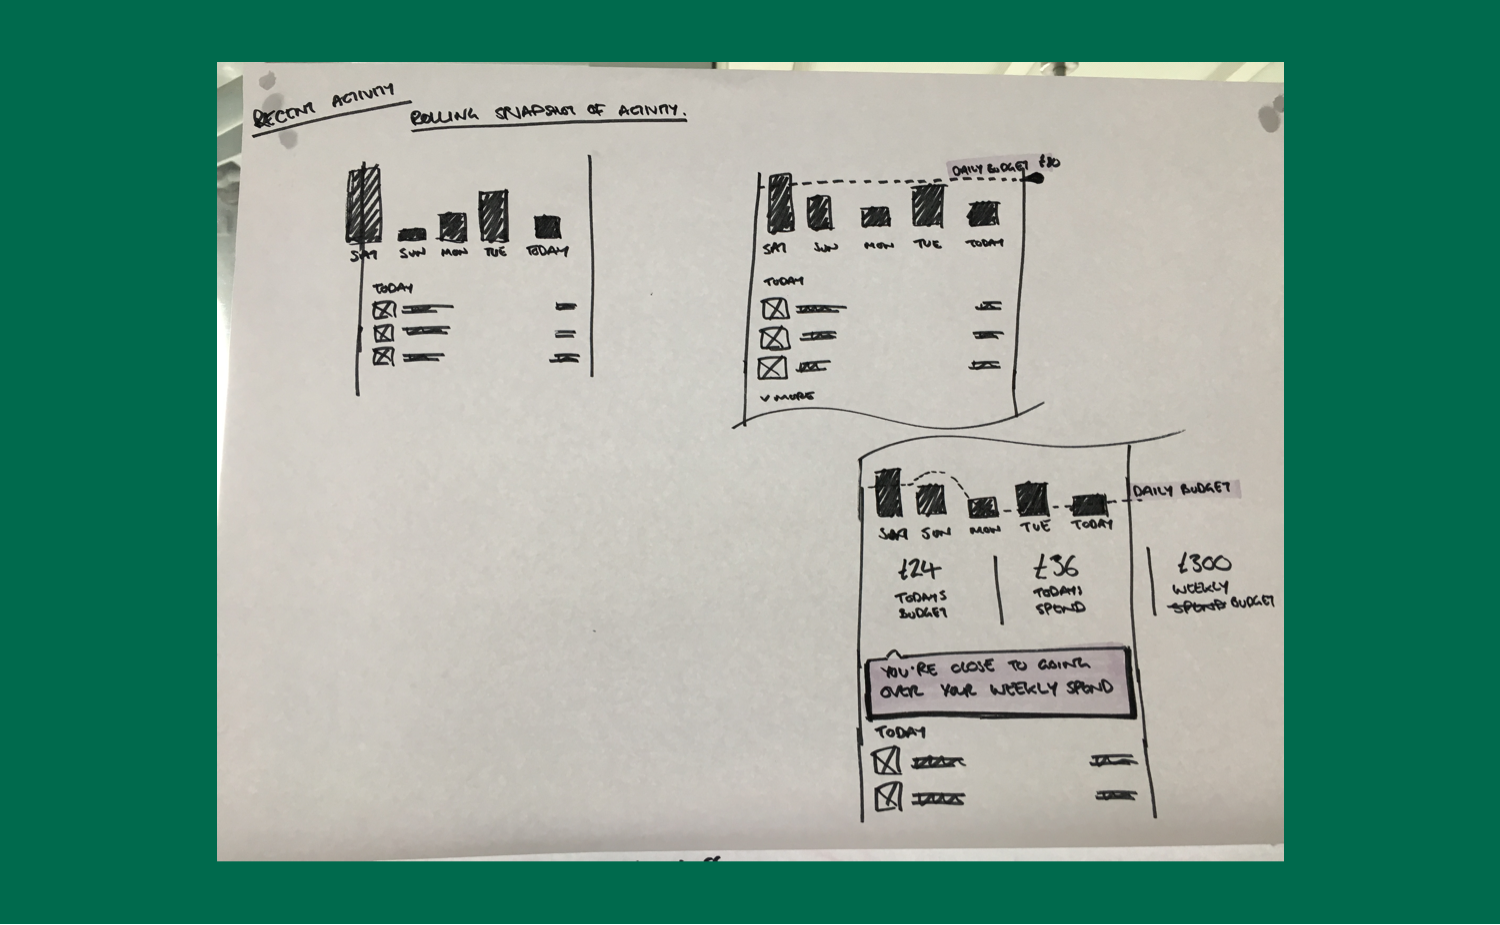 RECENT ACTIVITY
ROLLING SNAPSHOT OF ACTIVITY.
SAT SUN MON TUE TODAY
TODAY
DAILY BUDGET £80
SAT SUN MON TUE TODAY
TODAY
V MORE
DAILY BUDGET
SAT SUN MON TUE TODAY
£24
TODAYS
BUDGET
£36
TODAYS
SPEND
£300
WEEKLY
SPEND BUDGET
YOU'RE CLOSE TO GOING
OVER YOUR WEEKLY SPEND
TODAY